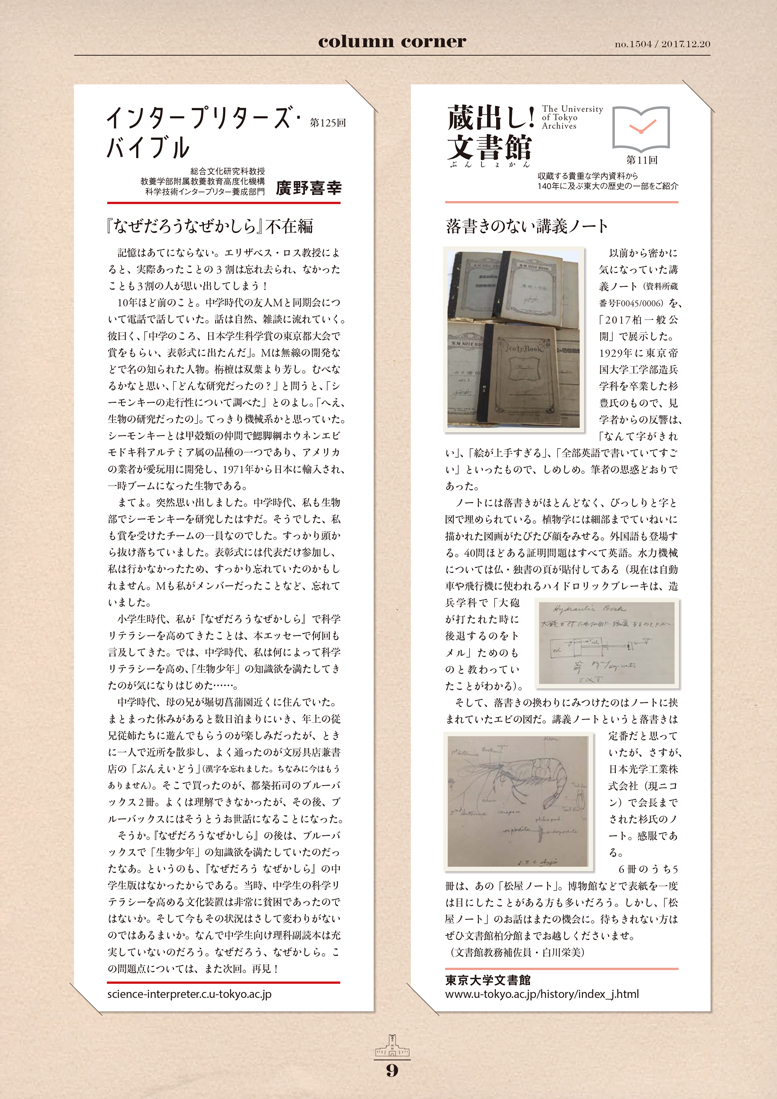 column corner
no.1504 / 2017.12.20
インタープリターズ・
バイブル
第125回
総合文化研究科教授
教養学部附属教養教育高度化機構
科学技術インタープリター養成部門
廣野喜幸
『なぜだろうなぜかしら』不在編
記憶はあてにならない。エリザベス・ロス教授によ
ると、実際あったことの3割は忘れ去られ、なかった
ことも3割の人が思い出してしまう！
10年ほど前のこと。中学時代の友人Mと同期会につ
いて電話で話していた。話は自然、雑談に流れていく。
彼曰く、「中学のころ、日本学生科学賞の東京都大会で
賞をもらい、表彰式に出たんだ」。Mは無線の開発な
どで名の知られた人物。栴檀は双葉より芳し。むべな
るかなと思い、「どんな研究だったの？」と問うと、「シ
ーモンキーの走行性について調べた」とのよし。「へえ、
生物の研究だったの」。てっきり機械系かと思っていた。
シーモンキーとは甲殻類の仲間で鰓脚綱ホウネンエビ
モドキ科アルテミア属の品種の一つであり、アメリカ
の業者が愛玩用に開発し、1971年から日本に輸入され、
一時ブームになった生物である。
まてよ。突然思い出しました。中学時代、私も生物
部でシーモンキーを研究したはずだ。そうでした、私
も賞を受けたチームの一員なのでした。すっかり頭か
ら抜け落ちていました。表彰式には代表だけ参加し、
私は行かなかったため、すっかり忘れていたのかもし
れません。Mも私がメンバーだったことなど、忘れて
いました。
小学生時代、私が『なぜだろうなぜかしら』で科学
リテラシーを高めてきたことは、本エッセーで何回も
言及してきた。では、中学時代、私は何によって科学
リテラシーを高め、「生物少年」の知識欲を満たしてき
たのが気になりはじめた……。
中学時代、母の兄が堀切菖蒲園近くに住んでいた。
まとまった休みがあると数日泊まりにいき、年上の従
兄従姉たちに遊んでもらうのが楽しみだったが、とき
に一人で近所を散歩し、よく通ったのが文房具店兼書
店の「ぶんえいどう」(漢字を忘れました。ちなみに今はもう
ありません)。そこで買ったのが、都築拓司のブルーバ
ックス2冊。よくは理解できなかったが、その後、ブ
ルーバックスにはそうとうお世話になることになった。
そうか。『なぜだろうなぜかしら』の後は、ブルーバ
ックスで「生物少年」の知識欲を満たしていたのだっ
たなあ。というのも、『なぜだろう なぜかしら』の中
学生版はなかったからである。当時、中学生の科学リ
テラシーを高める文化装置は非常に貧困であったので
はないか。そして今もその状況はさして変わりがない
のではあるまいか。なんで中学生向け理科副読本は充
実していないのだろう。なぜだろう、なぜかしら。こ
の問題点については、また次回。再見！
science-interpreter.c.u-tokyo.ac.jp
蔵出し!
文書館
ぶんしょかん
The University
of Tokyo
Archives
第11回
収蔵する貴重な学内資料から
140年に及ぶ東大の歴史の一部をご紹介
落書きのない講義ノート
以前から密かに
気になっていた講
義ノート（資料所蔵
番号F0045/0006）を、
「2017柏一般公
開」で展示した。
1929年に東京帝
国大学工学部造兵
学科を卒業した杉
豊氏のもので、見
学者からの反響は、
「なんて字がきれ
い」、「絵が上手すぎる」、「全部英語で書いていてすご
い」といったもので、しめしめ。筆者の思惑どおりで
あった。
ノートには落書きがほとんどなく、びっしりと字と
図で埋められている。植物学には細部までていねいに
描かれた図画がたびたび顔をみせる。外国語も登場す
る。40問ほどある証明問題はすべて英語。水力機械
については仏・独書の頁が貼付してある（現在は自動
車や飛行機に使われるハイドロリックブレーキは、造
兵学科で「大砲
が打たれた時に
後退するのをト
メル」ためのも
のと教わってい
たことがわかる）。
Hydraulic Brake
そして、落書きの換わりにみつけたのはノートに挟
まれていたエビの図だ。講義ノートというと落書きは
定番だと思って
いたが、さすが、
日本光学工業株
式会社（現ニコ
ン）で会長まで
された杉氏のノ
ート。感服であ
る。
6冊のうち5
冊は、あの「松屋ノート」。博物館などで表紙を一度
は目にしたことがある方も多いだろう。しかし、「松
屋ノート」のお話はまたの機会に。待ちきれない方は
ぜひ文書館柏分館までお越しくださいませ。
（文書館教務補佐員・白川栄美）
東京大学文書館
www.u-tokyo.ac.jp/history/index_j.html
9